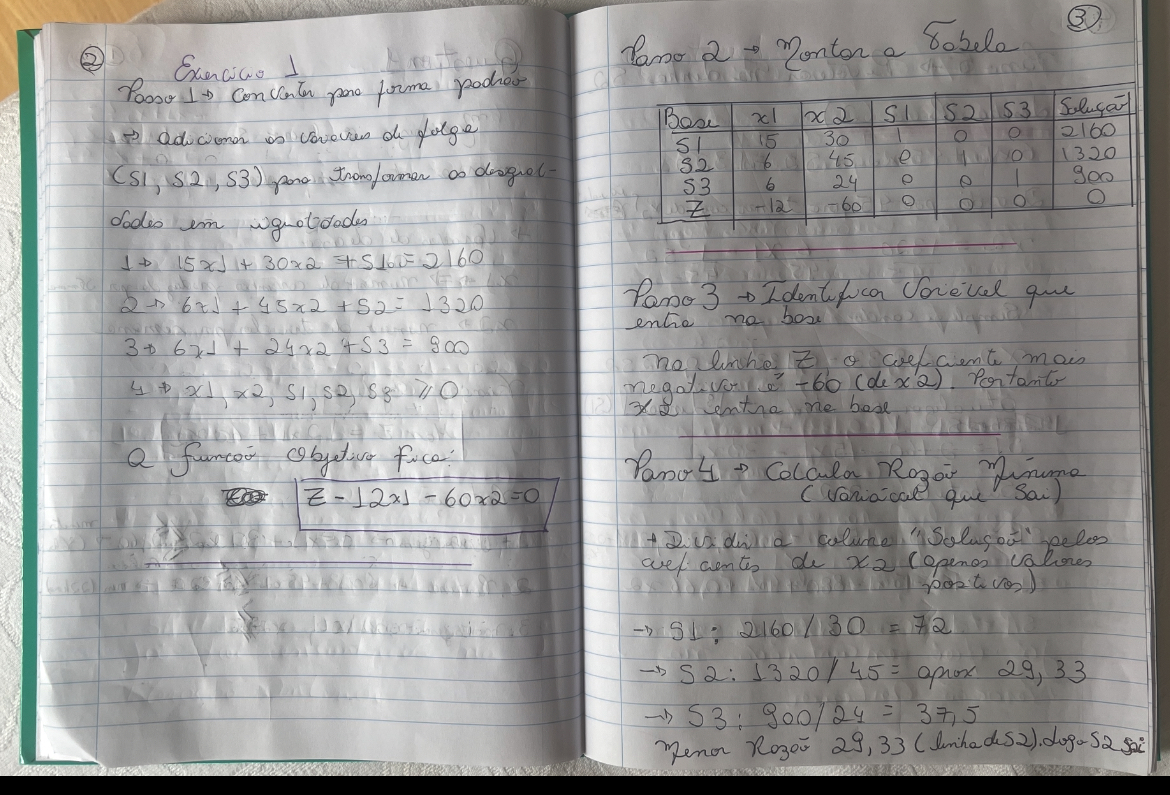 2
Exercício 1
Passo 1 → Converter para forma padrão
⇒ adicionar as variáveis de folga
(S1, S2, S3) para transformar as desigual-
dades em igualdades
1 → 15x1 + 30x2 + S1 = 2160
2 → 6x1 + 45x2 + S2 = 1320
3 → 6x1 + 24x2 + S3 = 900
4 → x1, x2, S1, S2, S3 ≥ 0
a função Objetivo fica:
Z - 12x1 - 60x2 = 0
3
Passo 2 → Montar a Tabela
Base x1 x2 S1 S2 S3 Solução
S1 15 30 1 0 0 2160
S2 6 45 0 1 0 1320
S3 6 24 0 0 1 900
Z -12 -60 0 0 0 0
Passo 3 → Identificar Variável que
entra na base
na linha Z o coeficiente mais
negativo é -60 (de x2). Portanto
x2 entra na base
Passo 4 → Calcular Razão Mínima
(Variável que Sai)
→ Dividir a coluna "Solução" pelos
coeficientes de x2 (apenas valores
positivos)
→ S1: 2160 / 30 = 72
→ S2: 1320 / 45 = aprox 29,33
→ S3: 900/24 = 37,5
Menor Razão 29,33 (linha de S2). Logo S2 sai